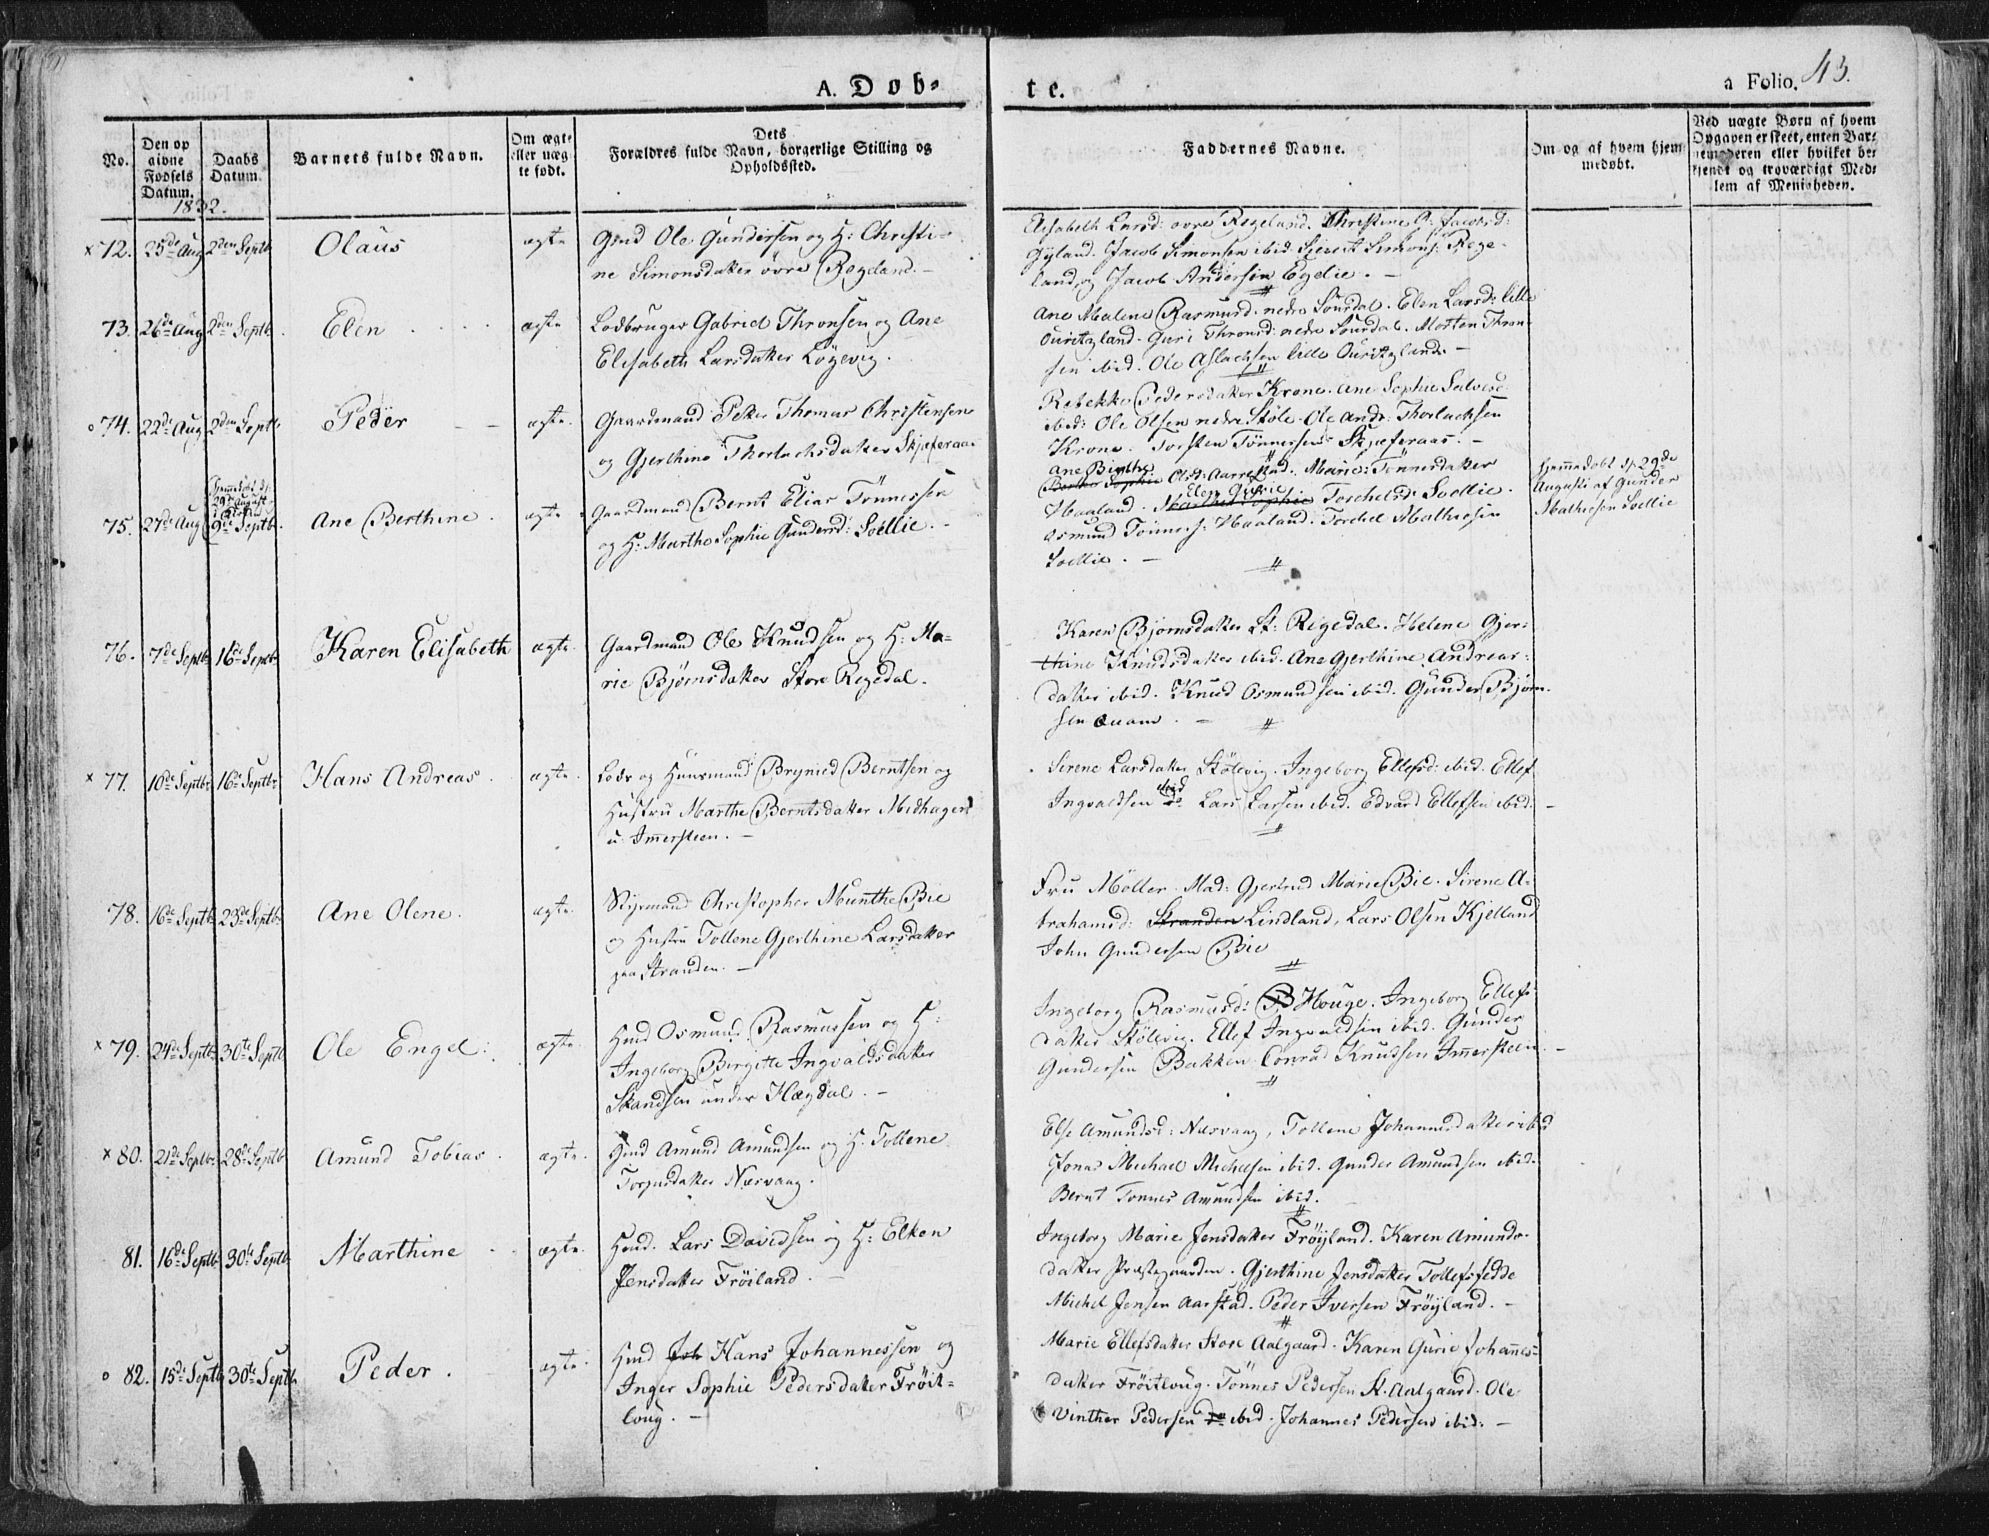 A. Døb-
te.
a Folio. 43.
No.
Den op
givne
Fødsels
Datum.
Daabs
Datum.
Barnets fulde Navn.
Om ægte
eller uæg
te født.
Dets
Forældres fulde Navn, borgerlige Stilling og
Opholdssted.
Faddernes Navne.
Om og af hvem hjem-
medøbt.
Ved uægte Børn af hvem
Opgaven er skeet, enten Bar-
nemoderen eller hvilket be-
kjendt og troværdigt Med-
lem af Menigheden.
1832.
x 72. 25de Aug 2den Septb Olaus ægte
Gmd Ole Gundersen og H: Christi-
ne Simonsdatter øvre Regeland. -
Elisabeth Larsd: øvre Regeland. Christine P: Jacobsd:
Gyland. Jacob Simonsen ibid. Sivert Simons: Rege-
land og Jacob Andersen Egelie. -
73. 26de Aug 2den Septb. Elen ægte
Lodbruger Gabriel Thronsen og Ane
Elisabeth Larsdatter Løgevig.
Ane Malene Rasmusd. nedre Suurdal. Elen Larsd: lille
Ouritzland. Guri Thronsd: nedre Suurdal. Morten Thron-
sen ibid. Ole Aslachsen lille Ouritzland. -
o 74. 22de Aug 2den Septb. Peder ægte.
Gaardmand Peter Thomas Christensen
og Gjerthine Thorlachsdatter Skjeferaas
Rebekka Pedersdatter Krone. Ane Sophie Salvesd
ibid: Ole Olsen nedre Støle. Ole Andr: Thorlachsen
Krone. Torsten Tønnessen Skjeferaas. -
75. 27de Aug 9de Septb. Ane Berthine. ægte
Hjemmedøbt d:
29de August
Gaardmand Bernt Elias Tønnessen
og H: Marthe Sophie Gundersd: Soellie. -
Ane Birthe
Olsd: Aarrestad. Marie: Tønnesdatter
Elen Gurie
Haaland. Marthe Sophie Torchelsd: Soellie.
Osmund Tønness: Haaland. Torchel Mathiesen
Soellie. -
hjemmedøbt d: 29de
Augusti af Gunder
Mathiesen Soellie
76. 7de Septb 16de Septb. Karen Elisabeth ægte.
Gaardmand Ole Knudsen og H: Ma-
rie Bjørnsdatter Store Regedal.
Karen Bjørnsdatter St: Regedal. Helene Gjer-
thine Knudsdatter ibid. Ane Gjerthine Andreas-
datter ibid. Knud Osmundsen ibid. Gunder Bjørn-
sen Quam. -
x 77. 10de Septbr 16de Septbr Hans Andreas. ægte.
Lods og Huusmand Brynild Berntsen og
Hustru Marthe Berntsdatter Midhagen
u: Immersteen. -
Sirene Larsdatter Stølevig. Ingeborg Ellefsd: ibid. Ellef
Ingvaldsen do ibid Lars Larsen ibid. Edvard Ellefsen ibid: -
78. 16de Septb 23de Septb. Ane Olene. ægte.
Styrmand Christopher Munthe Bie
og Hustru Tollene Gjerthine Larsdatter
paa Stranden. -
Fru Møller. Mad: Gjertrud Marie Bie. Sirene A-
brahamsd: Stranden Lindland, Lars Olsen Kjelland
John Gundersen Bie
x 79. 24de Septb. 30te Septb Ole Engel. ægte.
Hmd Osmund Rasmussen og H:
Ingeborg Birgitte Ingvaldsdatter
Skandsen under Hægdal. -
Ingeborg Rasmusd: B Houge. Ingeborg Ellefs-
datter Stølevig. Ellef Ingvaldsen ibid. Gunder
Gundersen Bakken. Conrad Knudsen Immersteen. -
x 80. 21de Septbr 28de Septb Amund Tobias. ægte.
Hmd Amund Amundsen og H: Tollene
Torjusdatter Næsvaag.
Else Amundsd: Næsvaag, Tollene Johannesdatter ibid
Jonas Michael Michelsen ibid. Gunder Amundsen ibid.
Bernt Tønnes Amundsen ibid.
81. 16de Septb 30te Septb. Marthine ægte.
Hmd. Lars Davidsen og H: Elken
Jensdatter Frøiland. -
Ingeborg Marie Jensdatter Frøyland. Karen Amunds-
datter Præstegaarden. Gjerthine Jensdatter Tollefsfedde
Michel Jensen Aarstad. Peder Iversen Frøyland. -
o 82. 15de Septb 30te Septb. Peder. ægte.
Hmd Joh Hans Johannessen og
Inger Sophie Pedersdatter Frøit-
loug. -
Marie Ellefsdatter Store Aalgaard. Karen Gurie Johannes-
datter Frøitloug. Tønnes Pedersen St. Aalgaard. Ole
Vinther Pedersen do ibid. Johannes Pedersen ibid: -